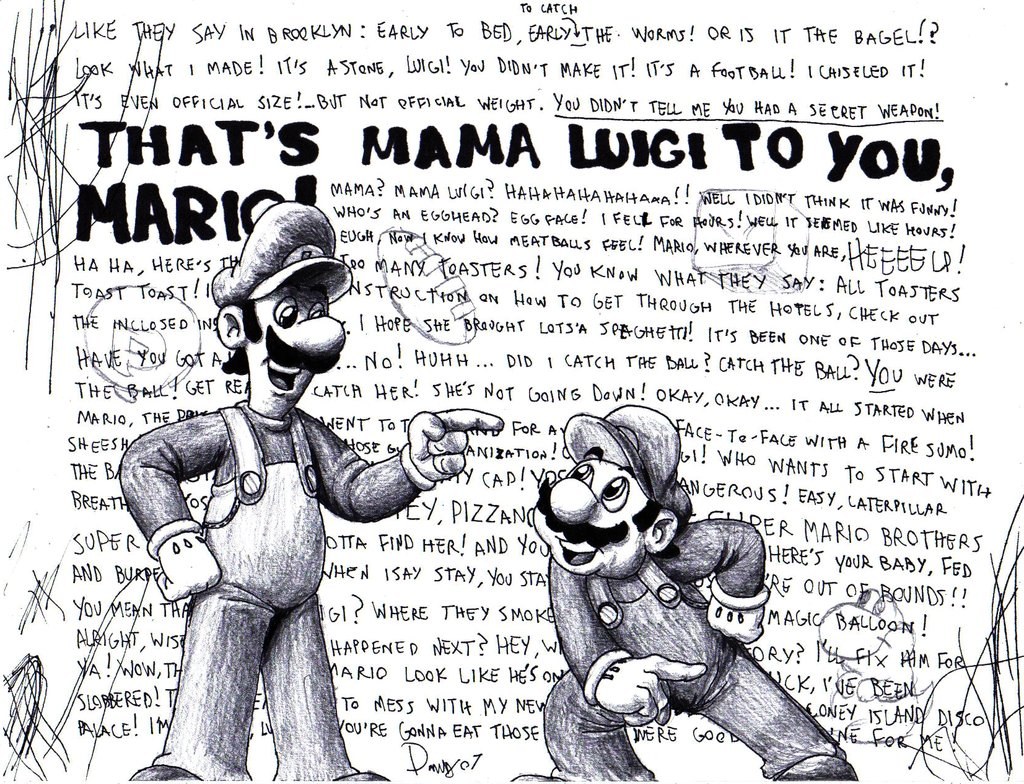 TO CATCH
LIKE THEY SAY IN BROOKLYN: EARLY TO BED, EARLY THE WORMS! OR IS IT THE BAGEL!?
LOOK WHAT I MADE! IT'S A STONE, LUIGI! YOU DIDN'T MAKE IT! IT'S A FOOTBALL! I CHISELED IT!
IT'S EVEN OFFICIAL SIZE!...BUT NOT OFFICIAL WEIGHT. YOU DIDN'T TELL ME YOU HAD A SECRET WEAPON!
THAT'S MAMA LUIGI TO YOU,
MARIO!
MAMA? MAMA LUIGI? HAHAHAHAHAHAHAAA!! WELL I DIDN'T THINK IT WAS FUNNY!
WHO'S AN EGGHEAD? EGG FACE! I FELL FOR HOURS! WELL IT SEEMED LIKE HOURS!
EUGH, NOW I KNOW HOW MEATBALLS FEEL! MARIO, WHEREVER YOU ARE, HEEEELP!
HA HA, HERE'S TH TOO MANY TOASTERS! YOU KNOW WHAT THEY SAY: ALL TOASTERS
TOAST TOAST! I NSTRUCTION ON HOW TO GET THROUGH THE HOTELS, CHECK OUT
THE INCLOSED INS . I HOPE SHE BROUGHT LOTS'A SPAGHETTI! IT'S BEEN ONE OF THOSE DAYS...
HAVE YOU GOT A ... NO! HUHH... DID I CATCH THE BALL? CATCH THE BALL? YOU WERE
THE BALL! GET REA CATCH HER! SHE'S NOT GOING DOWN! OKAY, OKAY... IT ALL STARTED WHEN
MARIO, THE WENT TO T ND FOR A FACE-TO-FACE WITH A FIRE SUMO!
SHEESH HOSE G ANIZATION! GI! WHO WANTS TO START WITH
THE BA Y CAD! YOS ANGEROUS! EASY, CATERPILLAR
BREATH YOS EY, PIZZANO SUPER MARIO BROTHERS
SUPER OTTA FIND HER! AND YOU HERE'S YOUR BABY, FED
AND BURPE WHEN I SAY STAY, YOU STA 'RE OUT OF BOUNDS!!
YOU MEAN THA IGI? WHERE THEY SMOKE MAGIC BALLOON!
ALRIGHT, WISE HAPPENED NEXT? HEY, W ORY? I'LL FIX HIM FOR
YA! WOW, TH MARIO LOOK LIKE HE'S ON UCK, I'VE BEEN
SLOBBERED! T TO MESS WITH MY NEW CONEY ISLAND DISCO
PALACE! I'M YOU'RE GONNA EAT THOSE WERE GOO INE FOR ME!
07